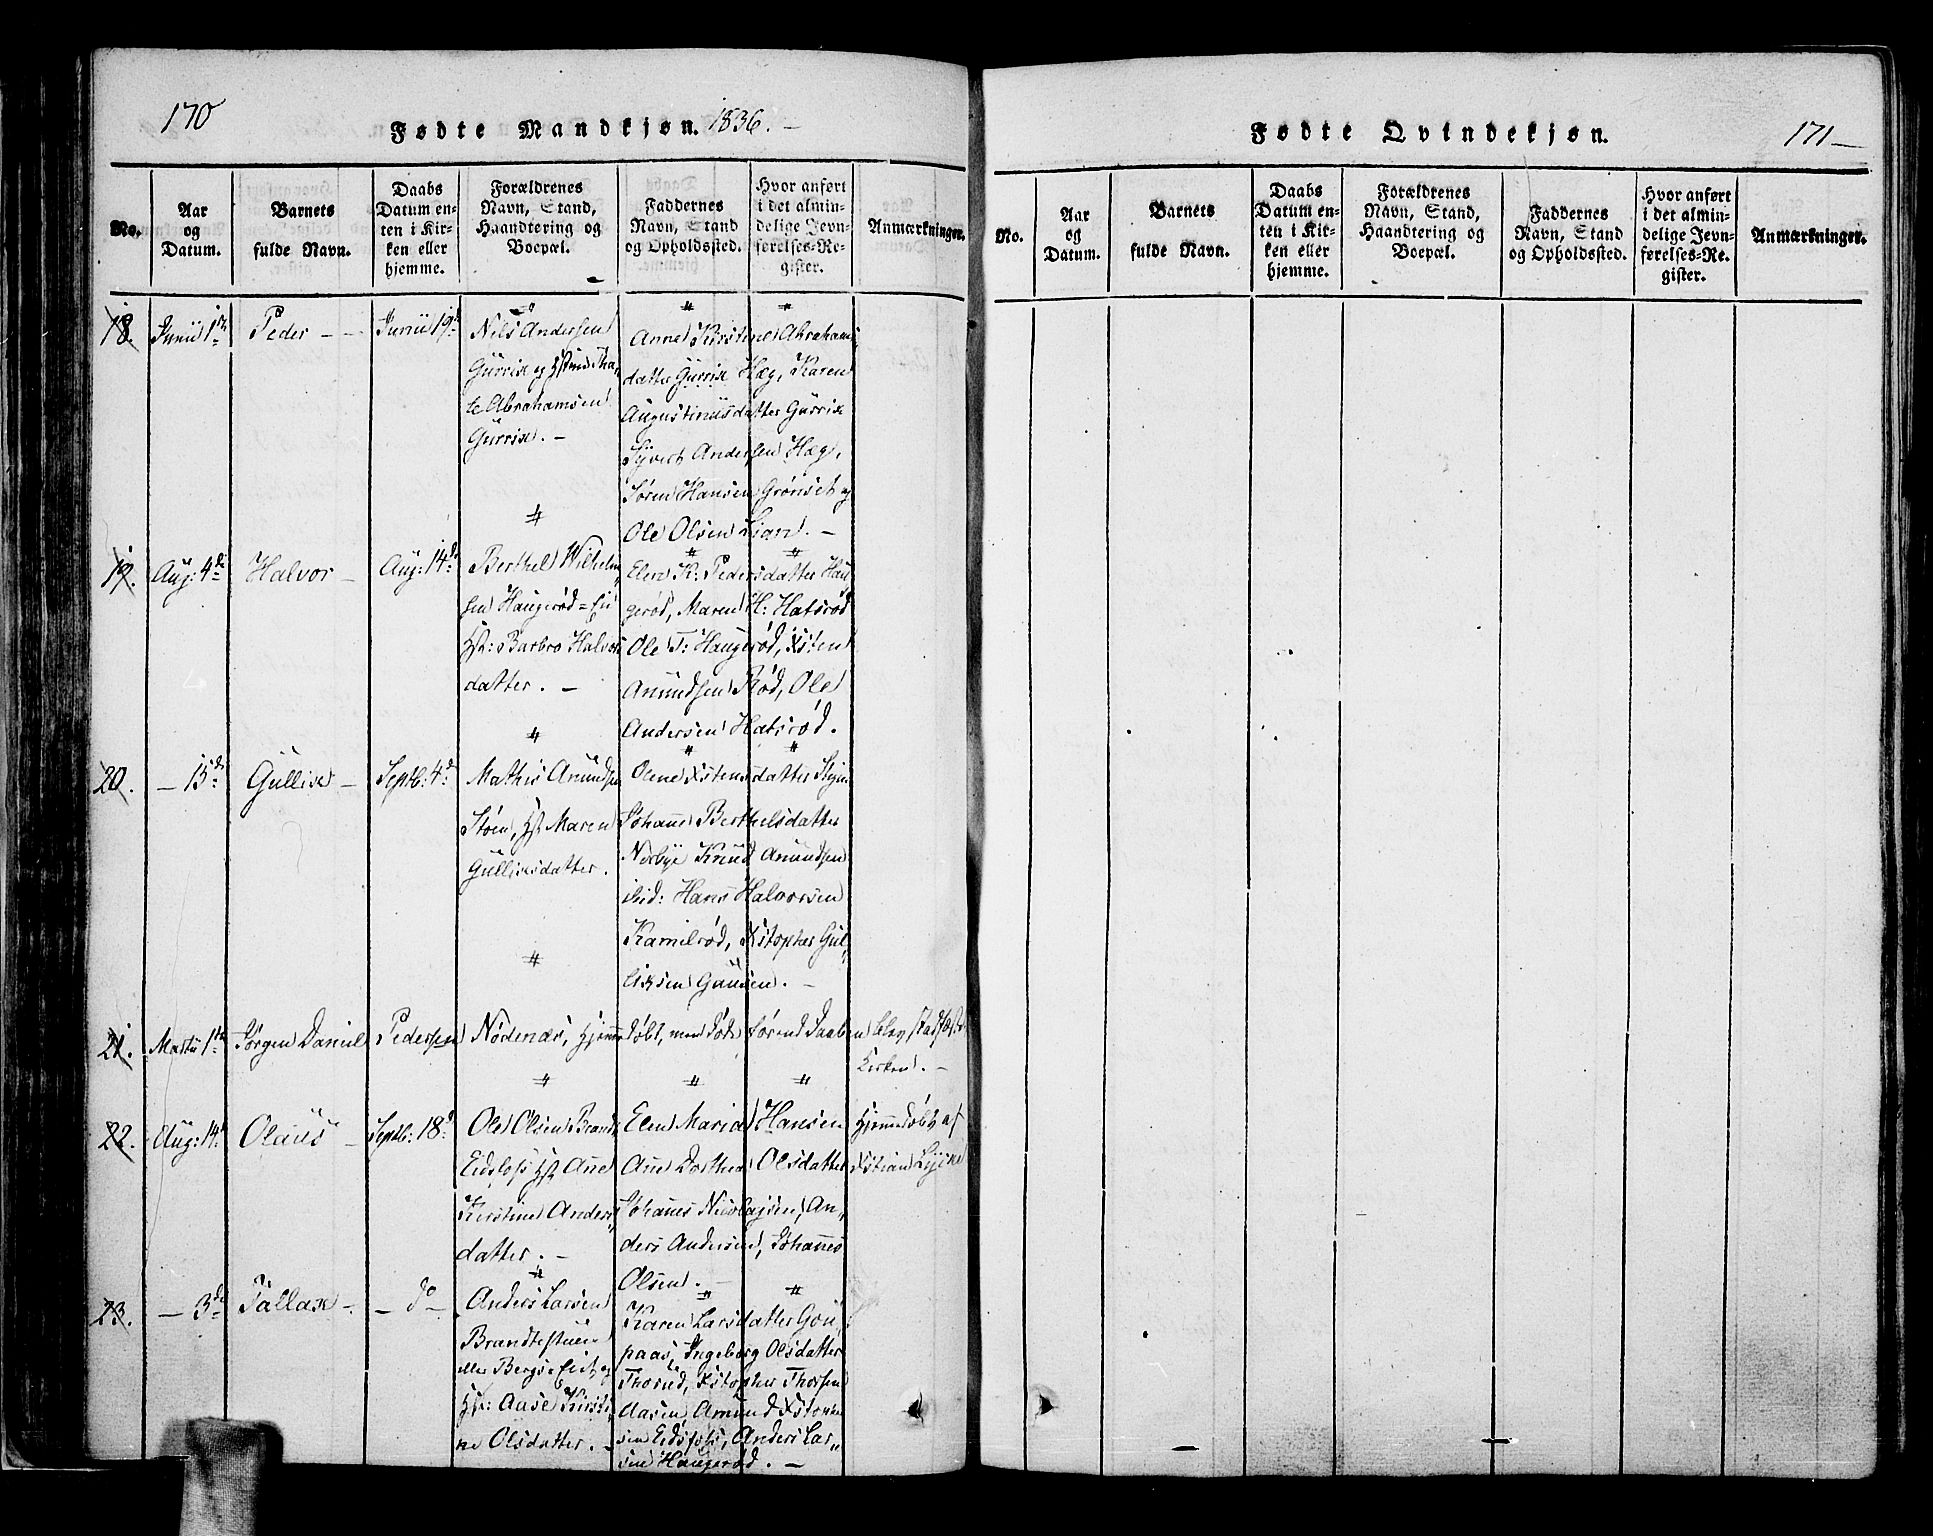 170
Fødte Mandkjøn. 1836. -
No.
Aar og Datum.
Barnets fulde Navn.
Daabs Datum enten i Kirken eller hjemme.
Forældrenes Navn, Stand, Haandtering og Boepæl.
Faddernes Navn, Stand og Opholdssted.
Hvor anført i det almindelige Jevnførelses-Register.
Anmærkninger.
18. Junii 1ste Peder - Junii 19de
Nils Andersen
Gurrix og
Abrahamsen
Gurrix. -
Anne Kirstine Abrahams
datter Gurrix Hæg, Karen
Augustinusdatter Gurrix
Syvert Andersen Hæg,
Søren Hansen Grønset og
Ole Olsen Lian. -
19. Aug: 4de Halvor - Aug: 14de
Berthel Wilhelm
sen Haugerød=Ei
Hst: Barbro Halvors
datter. -
Elen K: Pedersdatter Hau
gerød, Maren H: Hatsrød
Ole T: Haugerød, Xsten
Amundsen Rød, Ole
Andersen Hatsrød.
20. - 15de Gullix - Septb: 4de
Mathis Amundsen
Støen, Hst Maren
Gullixsdatter.
Olene Xstensdatter
Johanne Berthelsdatter
Norbye Knud Amundsen
ibid: Hans Halvorsen
Kamilrød, Xstopher Gul
lixsen Gunsen. -
21. Martii 1ste Jørgen Daniel Pedersen Nødenæs, hjemmedøbt, men døde førend Daaben blev stadfæstet
Kirken. -
22. Aug: 14de Olaus - Septb: 18de
Ole Olsen Brand
Eidsfoss Hst Anne
Kirstine Anders
datter. -
Elen Maria Hansen
Anne Dorthea Olsdatter
Johannes Nicolajsen, An
ders Andersen, Johannes
Olsen. -
Hjemmedøbt af
Xstian Lycke
23. - 3de Tallax - - do -
Anders Larsen
Brandtestuen
eller Bergs Eiet og
Hst: Aase Kirsti
ne Olsdatter. -
Karen Larsdatter Gou
paas, Ingeborg Olsdatter
Thorud, Xstopher Thorsen
Aasen, Amund Xstophe
sen Eidsfoss, Anders Lar
sen Haugerød. -
Fødte Qvindekjøn.
171 -
No.
Aar og Datum.
Barnets fulde Navn.
Daabs Datum enten i Kirken eller hjemme.
Forældrenes Navn, Stand, Haandtering og Boepæl.
Faddernes Navn, Stand og Opholdssted.
Hvor anført i det almindelige Jevnførelses-Register.
Anmærkninger.